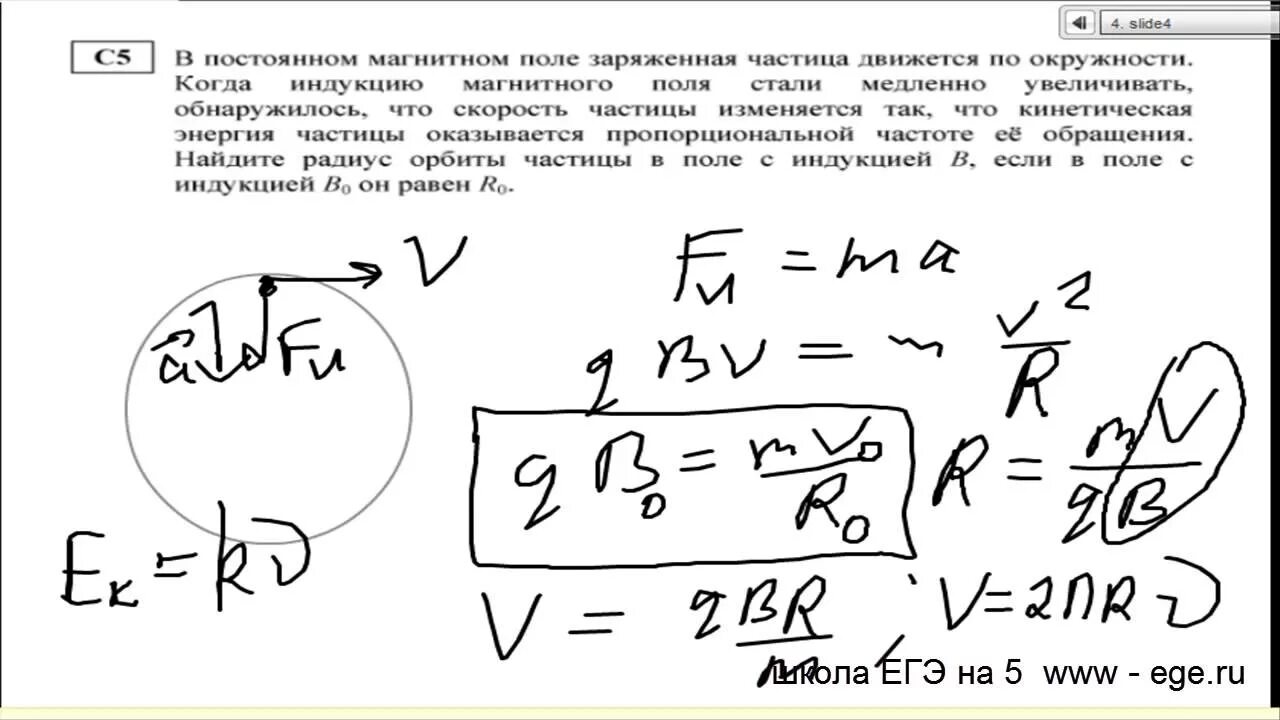 4. slide4
С5
В постоянном магнитном поле заряженная частица движется по окружности.
Когда индукцию магнитного поля стали медленно увеличивать,
обнаружилось, что скорость частицы изменяется так, что кинетическая
энергия частицы оказывается пропорциональной частоте её обращения.
Найдите радиус орбиты частицы в поле с индукцией B, если в поле с
индукцией B₀ он равен R₀.
V
a⃗ Fл
Fл = ma
qBV = m V²/R
qB₀ = mV₀/R₀
R = mV/qB
Eк = kν
V = qBR/m ; V = 2πRν
школа ЕГЭ на 5 www - ege.ru